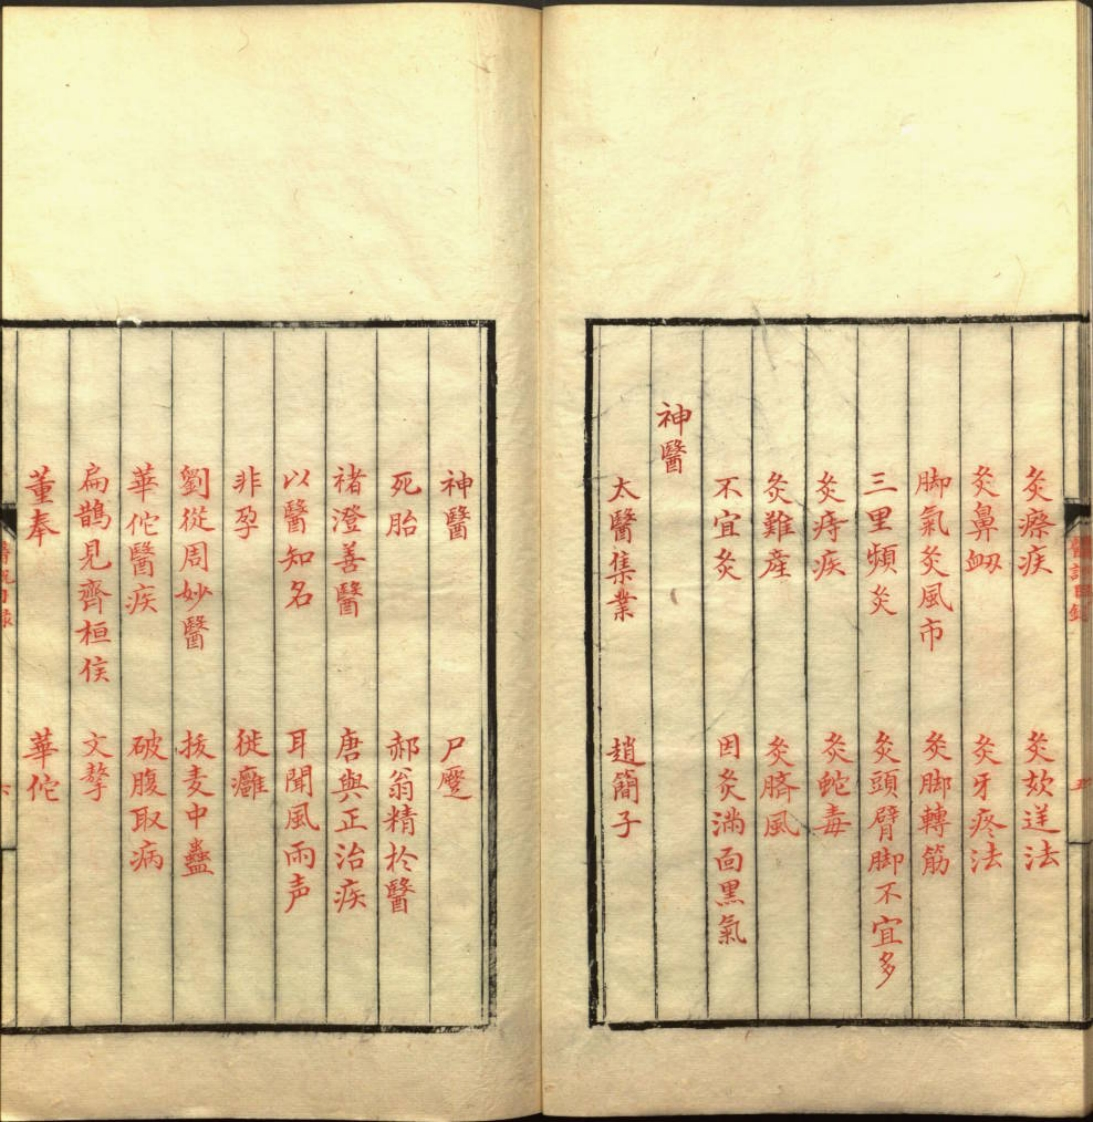 醫說目錄
五
灸瘵疾 灸欬逆法
灸鼻衂 灸牙疼法
脚氣灸風市 灸脚轉筋
三里頻灸 灸頭臂脚不宜多
灸痔疾 灸蛇毒
灸難產 灸臍風
不宜灸 因灸滿面黑氣
神醫
太醫集業 趙簡子
神醫 尸蹷
死胎 郝翁精於醫
褚澄善醫 唐與正治疾
以醫知名 耳聞風雨声
非孕 徙癰
劉從周妙醫 拔麦中蠱
華佗醫疾 破腹取病
扁鵲見齊桓侯 文摯
董奉 華佗
醫說目錄
六